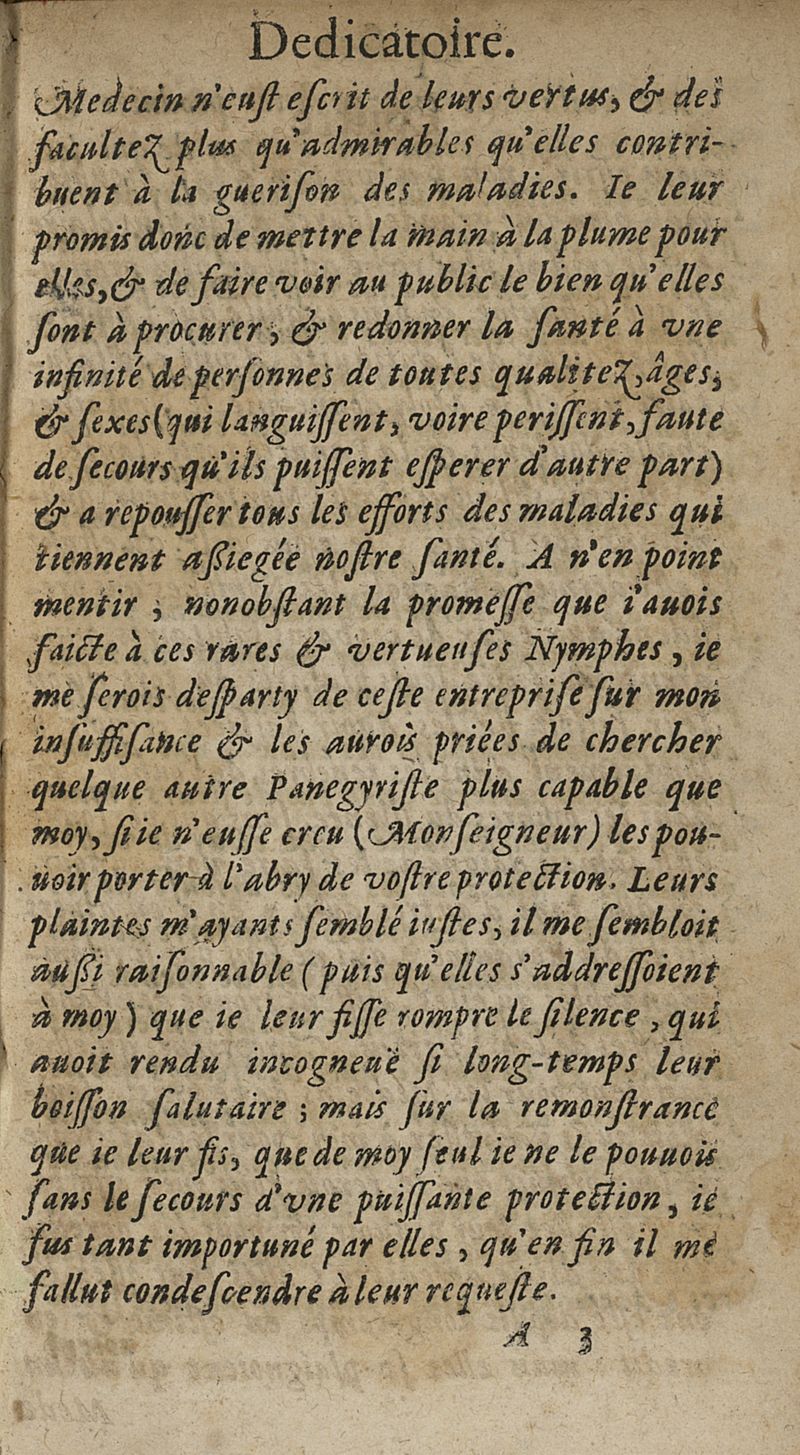 Dedicatoire.
Medecin n'eust escrit de leurs vertus, & des
facultez plus qu'admirables qu'elles contri-
buent à la guerison des maladies. Ie leur
promis donc de mettre la main à la plume pour
elles, & de faire voir au public le bien qu'elles
sont à procurer, & redonner la santé à vne
infinité de personnes de toutes qualitez, âges,
& sexes (qui languissent, voire perissent, faute
de secours qu'ils puissent esperer d'autre part)
& a repousser tous les efforts des maladies qui
tiennent assiegée nostre santé. A n'en point
mentir ; nonobstant la promesse que i'auois
faicte à ces rares & vertueuses Nymphes, ie
me serois desparty de ceste entreprise sur mon
insuffisance & les aurois priées de chercher
quelque autre Panegyriste plus capable que
moy, si ie n'eusse creu (Monseigneur) les pou-
uoir porter à l'abry de vostre protection. Leurs
plaintes m'ayants semblé iustes, il me sembloit
aussi raisonnable (puis qu'elles s'addressoient
à moy) que ie leur fisse rompre le silence, qui
auoit rendu incogneuë si long-temps leur
boisson salutaire ; mais sur la remonstrance
que ie leur fis, que de moy seul ie ne le pouuois
sans le secours d'vne puissante protection, ie
fus tant importuné par elles, qu'en fin il me
fallut condescendre à leur requeste.
A 3